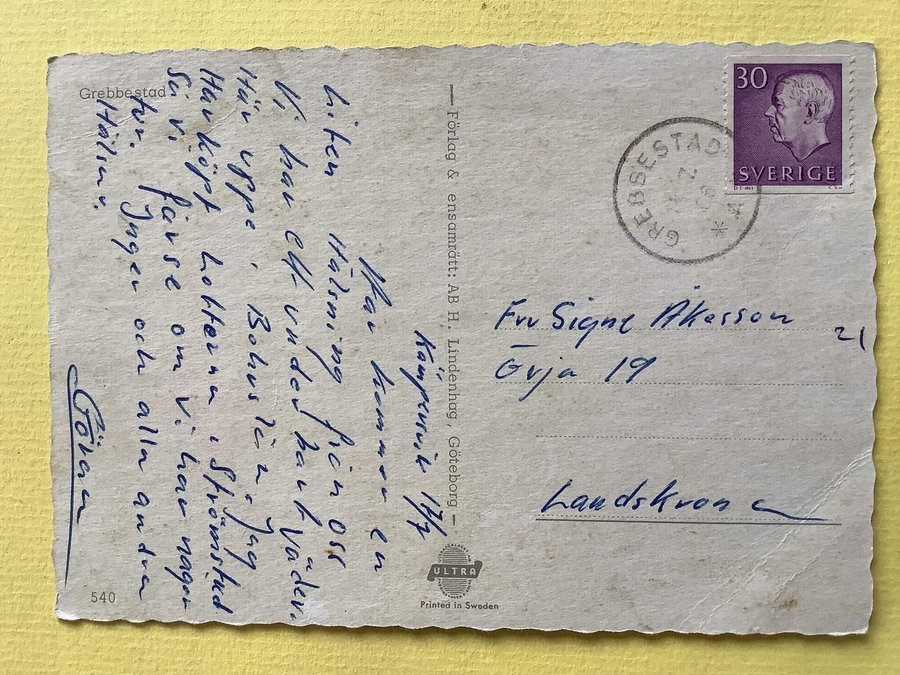 Grebbestad
Kämpersvik 17/7
Här kommer en
liten Hälsning från oss
Vi har ett underbart väder.
Här uppe i Bohuslän. Jag
Har köpt lotterna i Strömstad
Så vi får se om vi har någon
tur. Inger och alla andra
Hälsar.
Göran
540
— Förlag & ensamrätt: AB H. Lindenhag, Göteborg —
ULTRA
Printed in Sweden
30
SVERIGE
GREBBESTAD
Fru Signe Åkesson
21
Örja 19
Landskrona